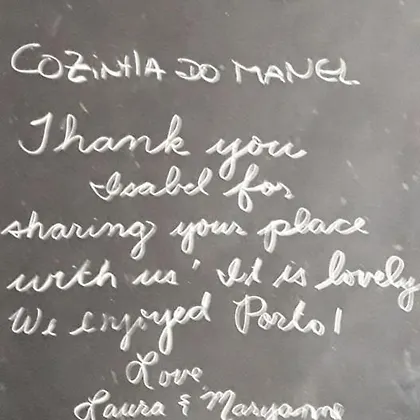 COZiNHA DO MANEL
Thank you
Isabel for
sharing your place
with us! It is lovely
We enjoyed Porto!
Love
Laura & Maryanne